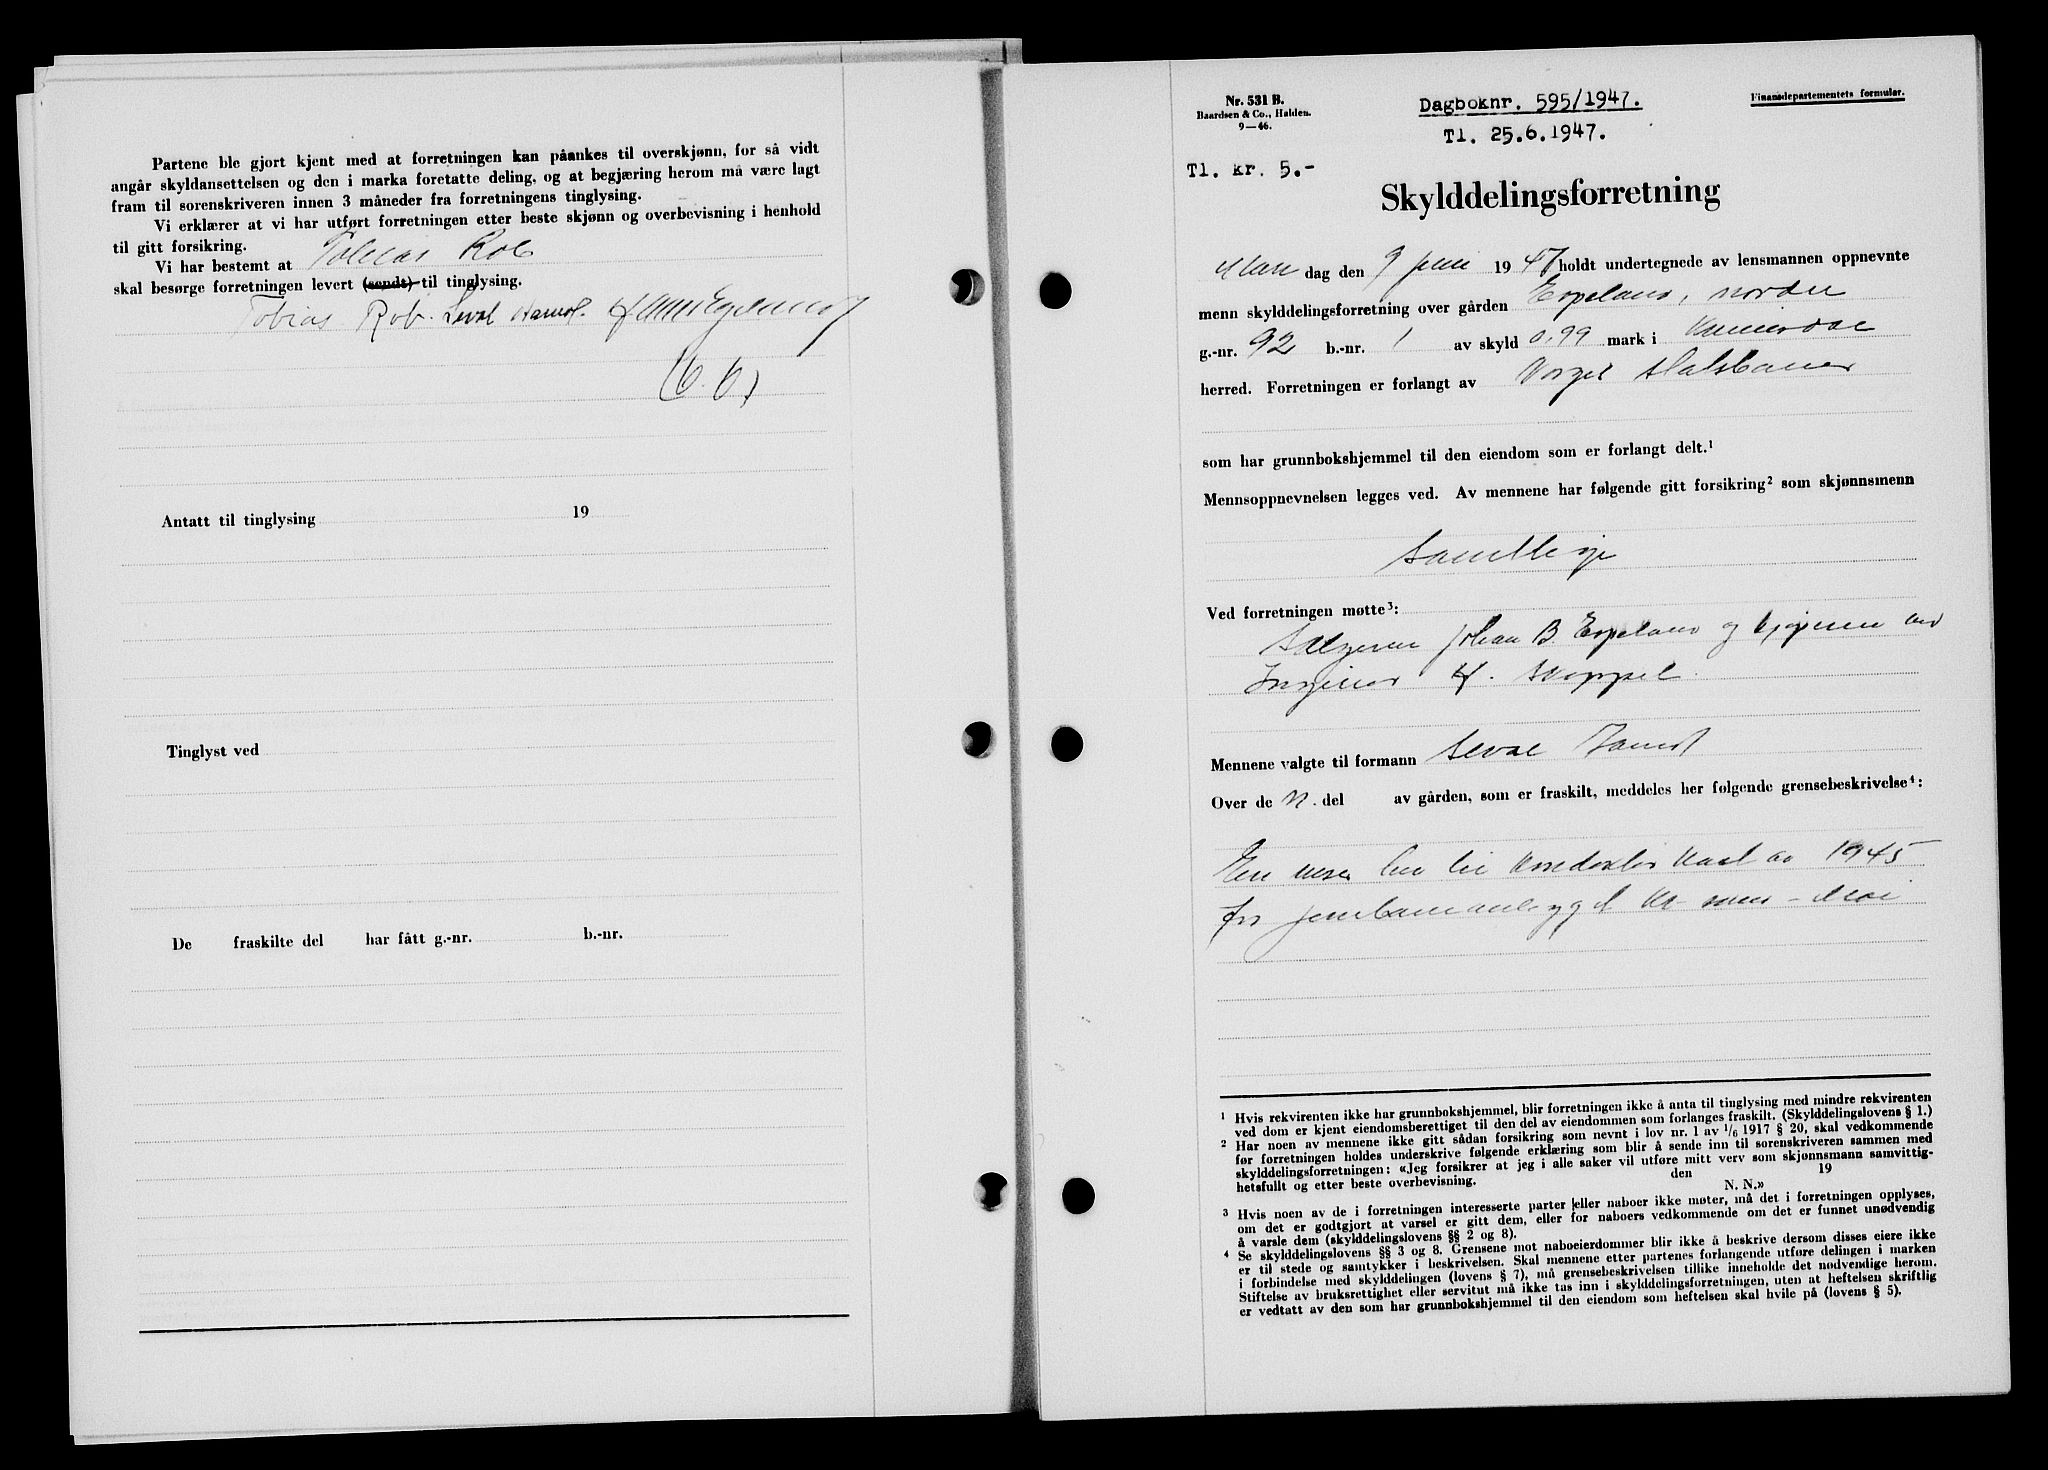 Partene ble gjort kjent med at forretningen kan påankes til overskjønn, for så vidt
angår skyldansettelsen og den i marka foretatte deling, og at begjæring herom må være lagt
fram til sorenskriveren innen 3 måneder fra forretningens tinglysing.
Vi erklærer at vi har utført forretningen etter beste skjønn og overbevisning i henhold
til gitt forsikring.
Vi har bestemt at Tobias Rob
skal besørge forretningen levert (sendt) til tinglysing.
Tobias Rob.
Antatt til tinglysing 19
Tinglyst ved
De fraskilte del har fått g.-nr. b.-nr.
Nr. 531 B.
Baardsen & Co., Halden.
9—46.
Dagboknr. 595/1947.
Tl. 25.6.1947.
Finansdepartementets formular.
Tl. kr. 5.-
Skylddelingsforretning
dag den 9 juni 1947 holdt undertegnede av lensmannen oppnevnte
menn skylddelingsforretning over gården Espeland, nordre
g.-nr. 92 b.-nr. 1 av skyld 0,99 mark i
herred. Forretningen er forlangt av
som har grunnbokshjemmel til den eiendom som er forlangt delt.¹
Mennsoppnevnelsen legges ved. Av mennene har følgende gitt forsikring² som skjønnsmenn
samtlige
Ved forretningen møtte³:
Selgeren Johan B. Espeland og kjøperen ved
Ingeniør
Mennene valgte til formann
Over de n. del av gården, som er fraskilt, meddeles her følgende grensebeskrivelse⁴:
1945
for jernbaneanlegget
¹ Hvis rekvirenten ikke har grunnbokshjemmel, blir forretningen ikke å anta til tinglysing med mindre rekvirenten
ved dom er kjent eiendomsberettiget til den del av eiendommen som forlanges fraskilt. (Skylddelingslovens § 1.)
² Har noen av mennene ikke gitt sådan forsikring som nevnt i lov nr. 1 av 1/6 1917 § 20, skal vedkommende
før forretningen holdes underskrive følgende erklæring som blir å sende inn til sorenskriveren sammen med
skylddelingsforretningen: «Jeg forsikrer at jeg i alle saker vil utføre mitt verv som skjønnsmann samvittig-
hetsfullt og etter beste overbevisning. den 19
N. N.»
³ Hvis noen av de i forretningen interesserte parter eller naboer ikke møter, må det i forretningen opplyses,
om det er godtgjort at varsel er gitt dem, eller for naboers vedkommende om det er funnet unødvendig
å varsle dem (skylddelingslovens §§ 2 og 8).
⁴ Se skylddelingslovens §§ 3 og 8. Grensene mot naboeierdommer blir ikke å beskrive dersom disses eiere ikke
er til stede og samtykker i beskrivelsen. Skal mennene etter partenes forlangende utføre delingen i marken
i forbindelse med skylddelingen (lovens § 7), må grensebeskrivelsen tillike inneholde det nødvendige herom.
Stiftelse av bruksrettighet eller servitut må ikke tas inn i skylddelingsforretningen, uten at heftelsen skriftlig
er vedtatt av den som har grunnbokshjemmel til den eiendom som heftelsen skal hvile på (lovens § 5).